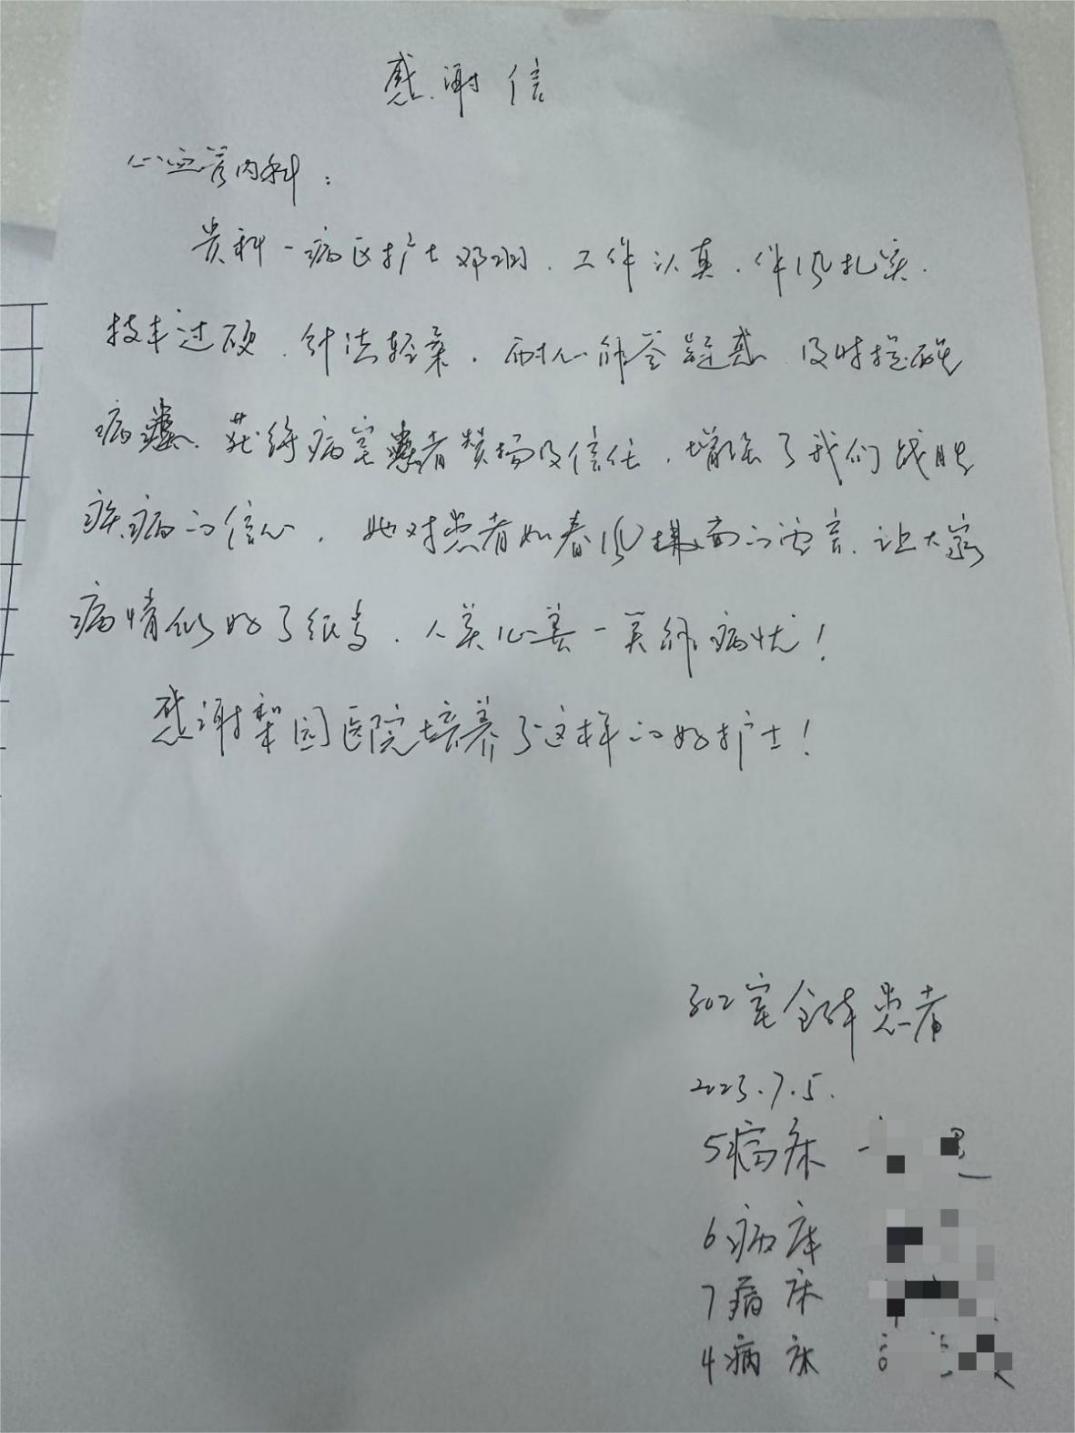 感谢信
心血管内科：
贵科一病区护士邓羽、工作认真、作风扎实、
技术过硬、针法轻柔、耐心解答疑惑、及时提醒
病患、获得病室患者赞扬及信任，增强了我们战胜
疾病的信心，她对患者如春风扑面的语言、让大家
病情似好了很多，人美心善一笑解病忧！
感谢梨园医院培养了这样的好护士！
302室全体患者
2023.7.5.
5病床
6病床
7病床
4病床